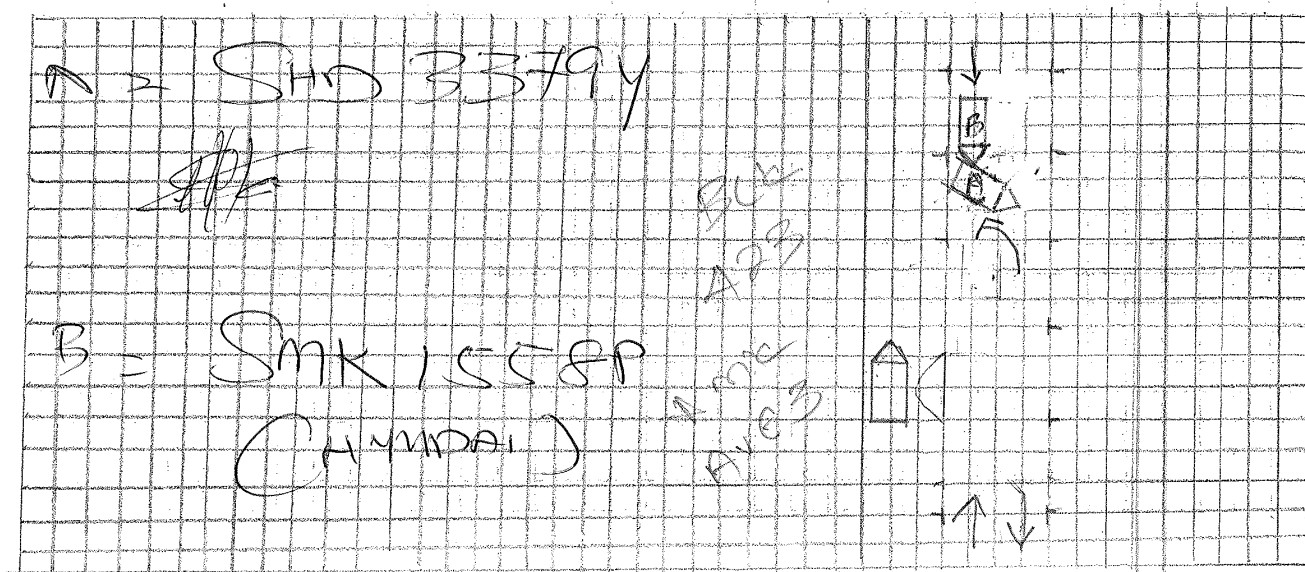 A = SHD 3379Y
B = SMK 1558P
(HYUNDAI)
BLK
A23
AMK
Ave 3
B
A